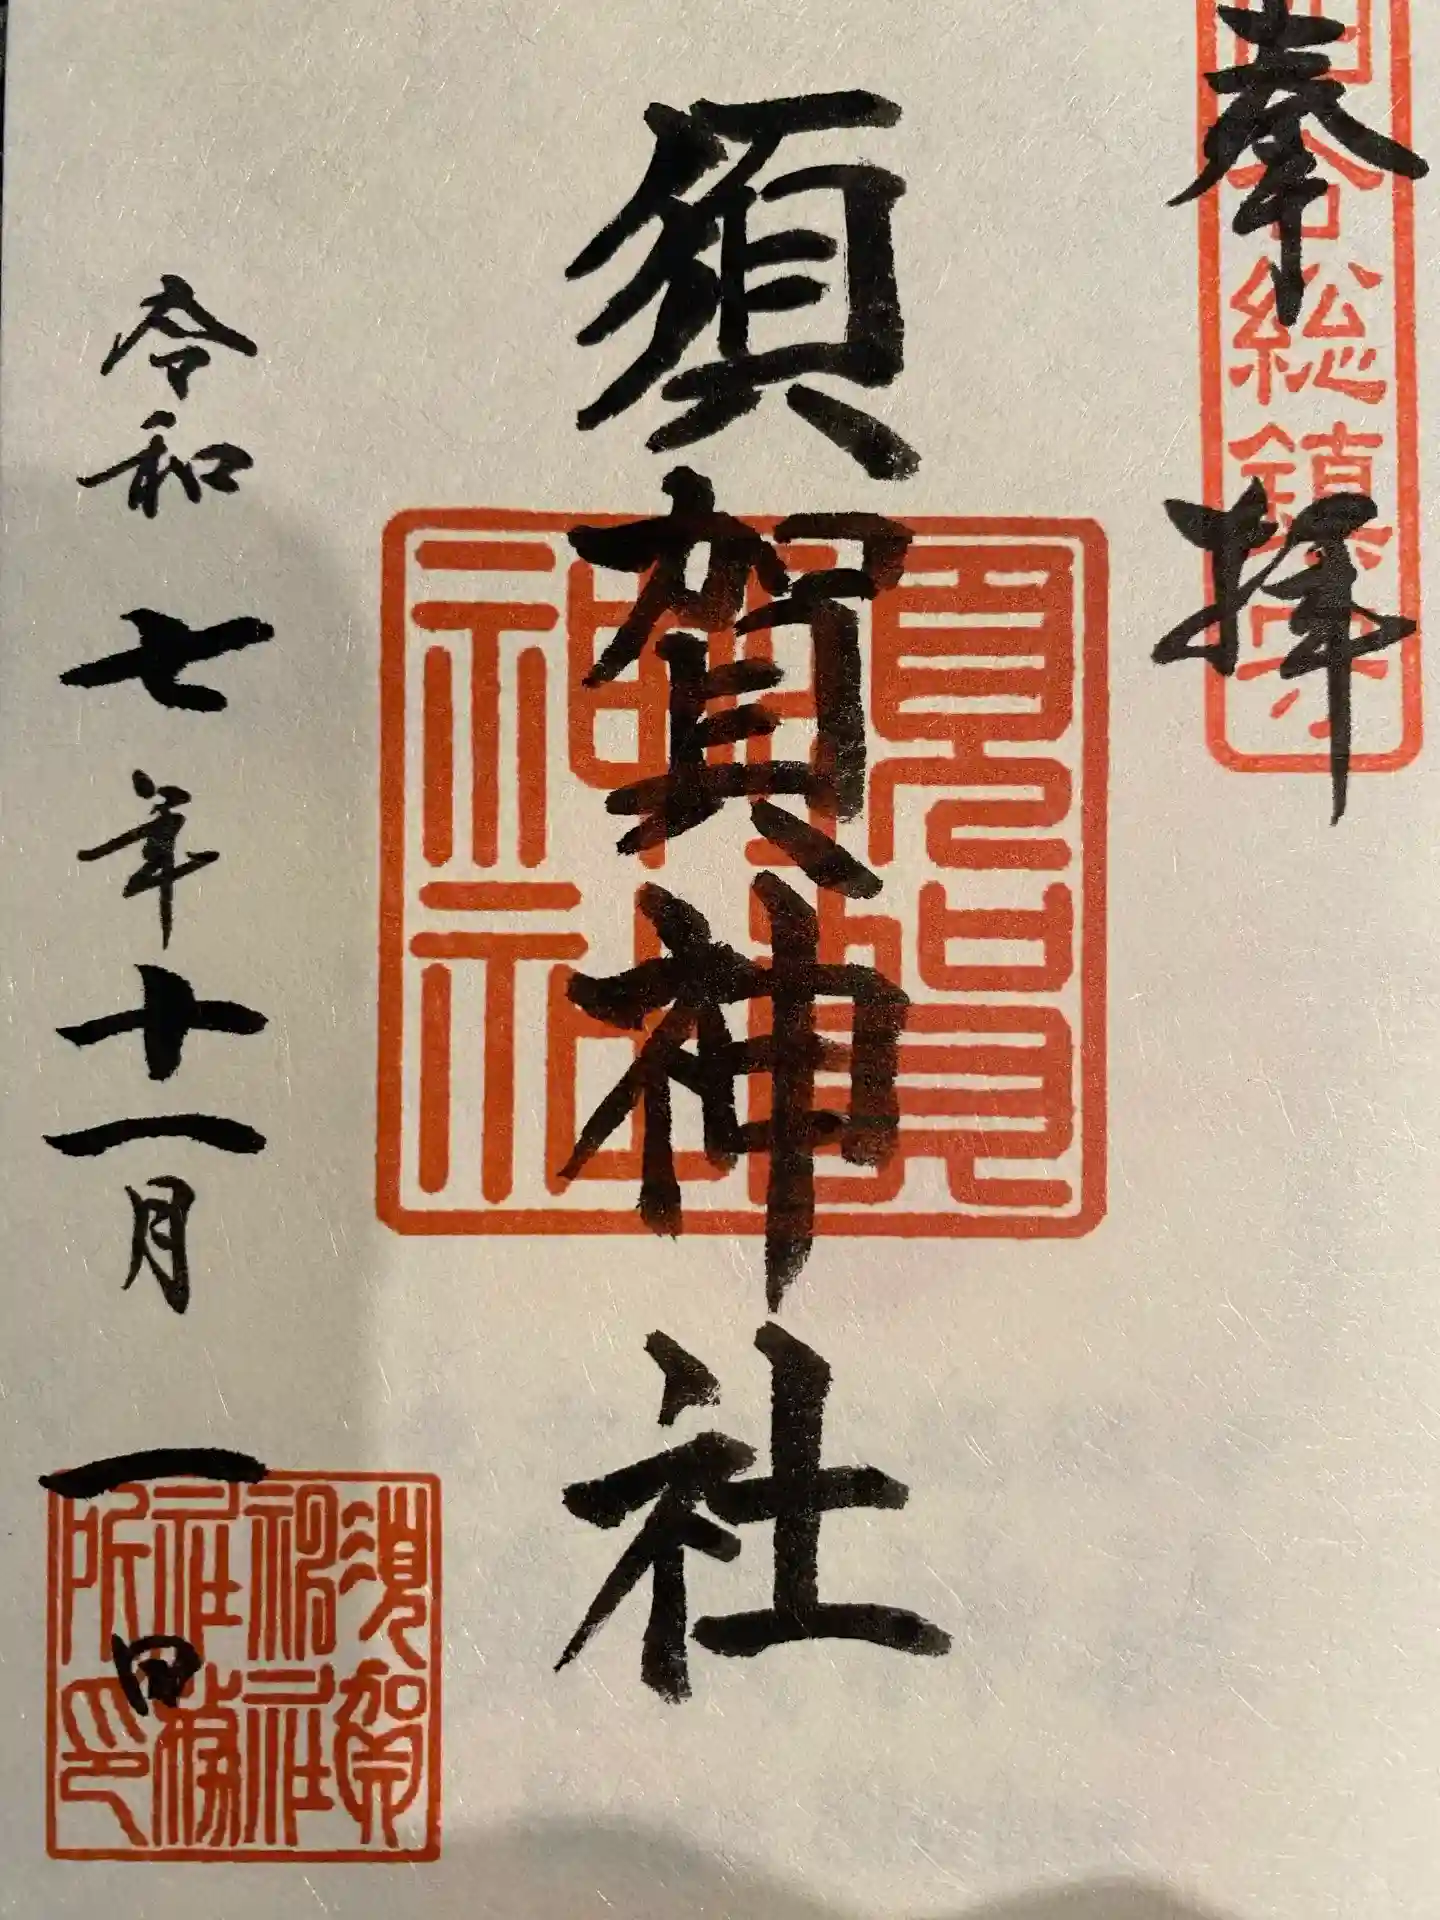 奉拝
四谷総鎮守
須賀神社
須賀神社
令和七年十一月一日
須賀神社社務所印